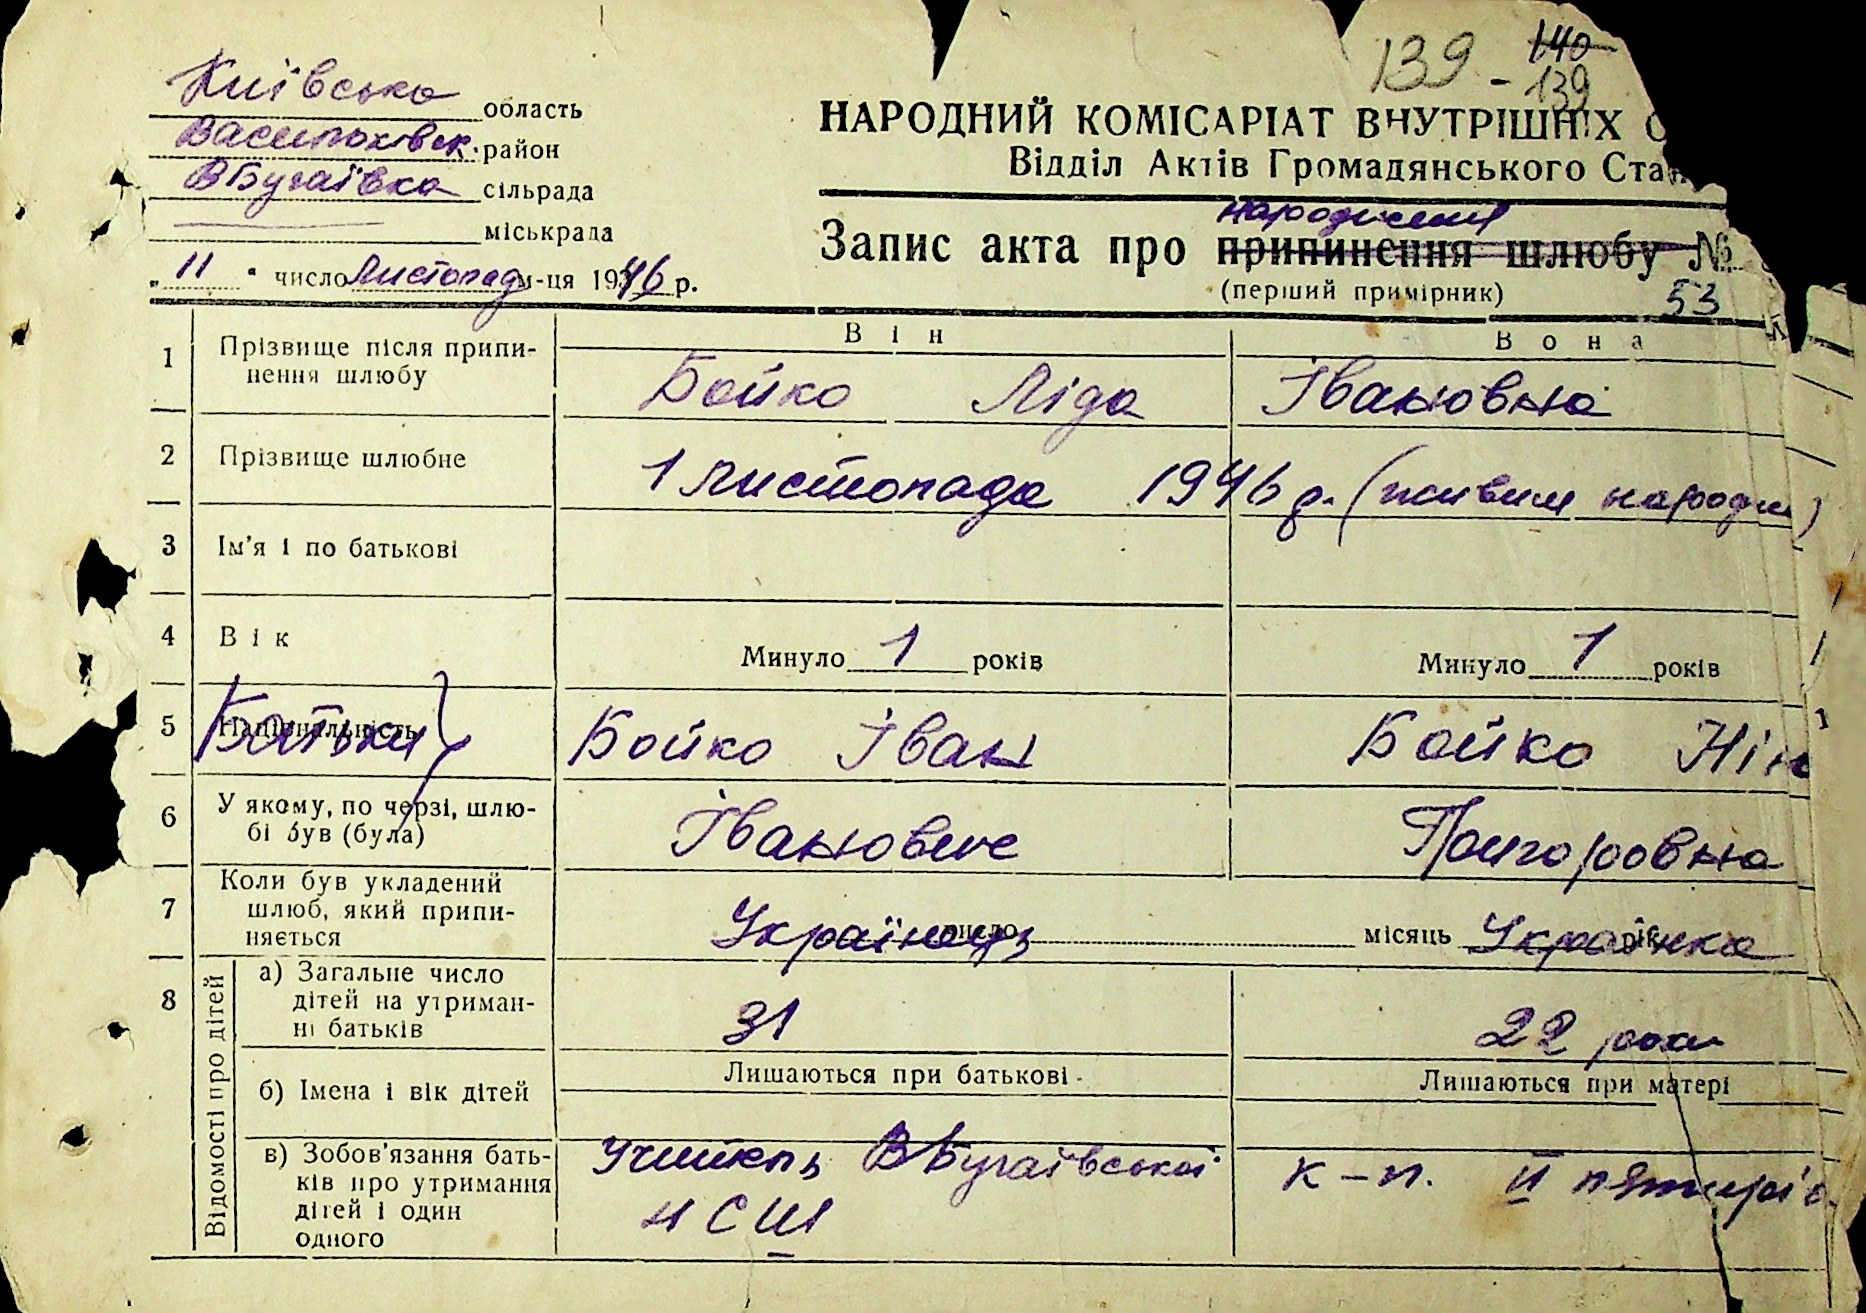 139 - 140
139
Київська область
Васильківськ. район
ВБугаївка сільрада
міськрада
„11“ число Листопад м-ця 1946 р.
НАРОДНИЙ КОМІСАРІАТ ВНУТРІШНІХ С
Відділ Актів Громадянського Ста
народження
Запис акта про припинення шлюбу №
(перший примірник) 53
Він Вона
1 Прізвище після припи-
нення шлюбу
Бойко Ліда Івановна
2 Прізвище шлюбне
1 листопада 1946 р. (живим народж)
3 Ім'я і по батькові
4 Вік
Минуло 1 років Минуло 1 років
5 Національність
Батьки
Бойко Іван Бойко Нін
6 У якому, по черзі, шлю-
бі був (була)
Іванович Григоровна
7 Коли був укладений
шлюб, який припи-
няється
Українець число місяць Українка рік
8 Відомості про дітей
а) Загальне число
дітей на утриман-
ні батьків
31 22 роки
б) Імена і вік дітей
Лишаються при батькові Лишаються при матері
в) Зобов'язання бать-
ків про утримання
дітей і один
одного
Учитель ВБугаївської к-п. ІІ пятирі
НСШ